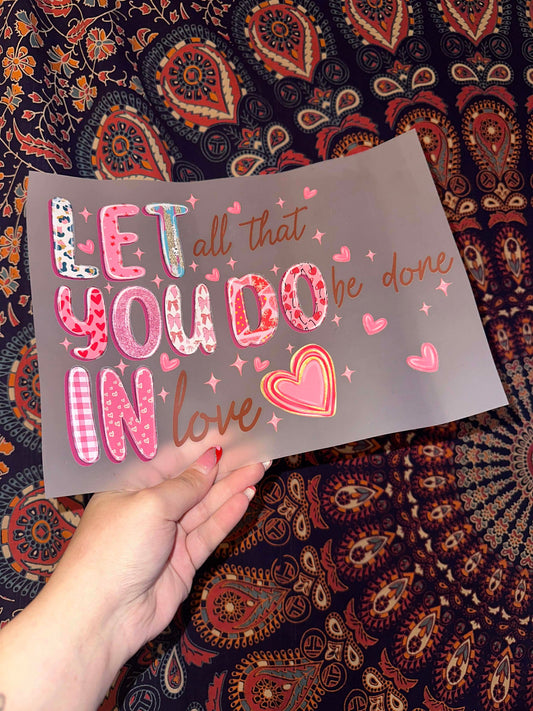 LET all that
YOU DO be done
IN love